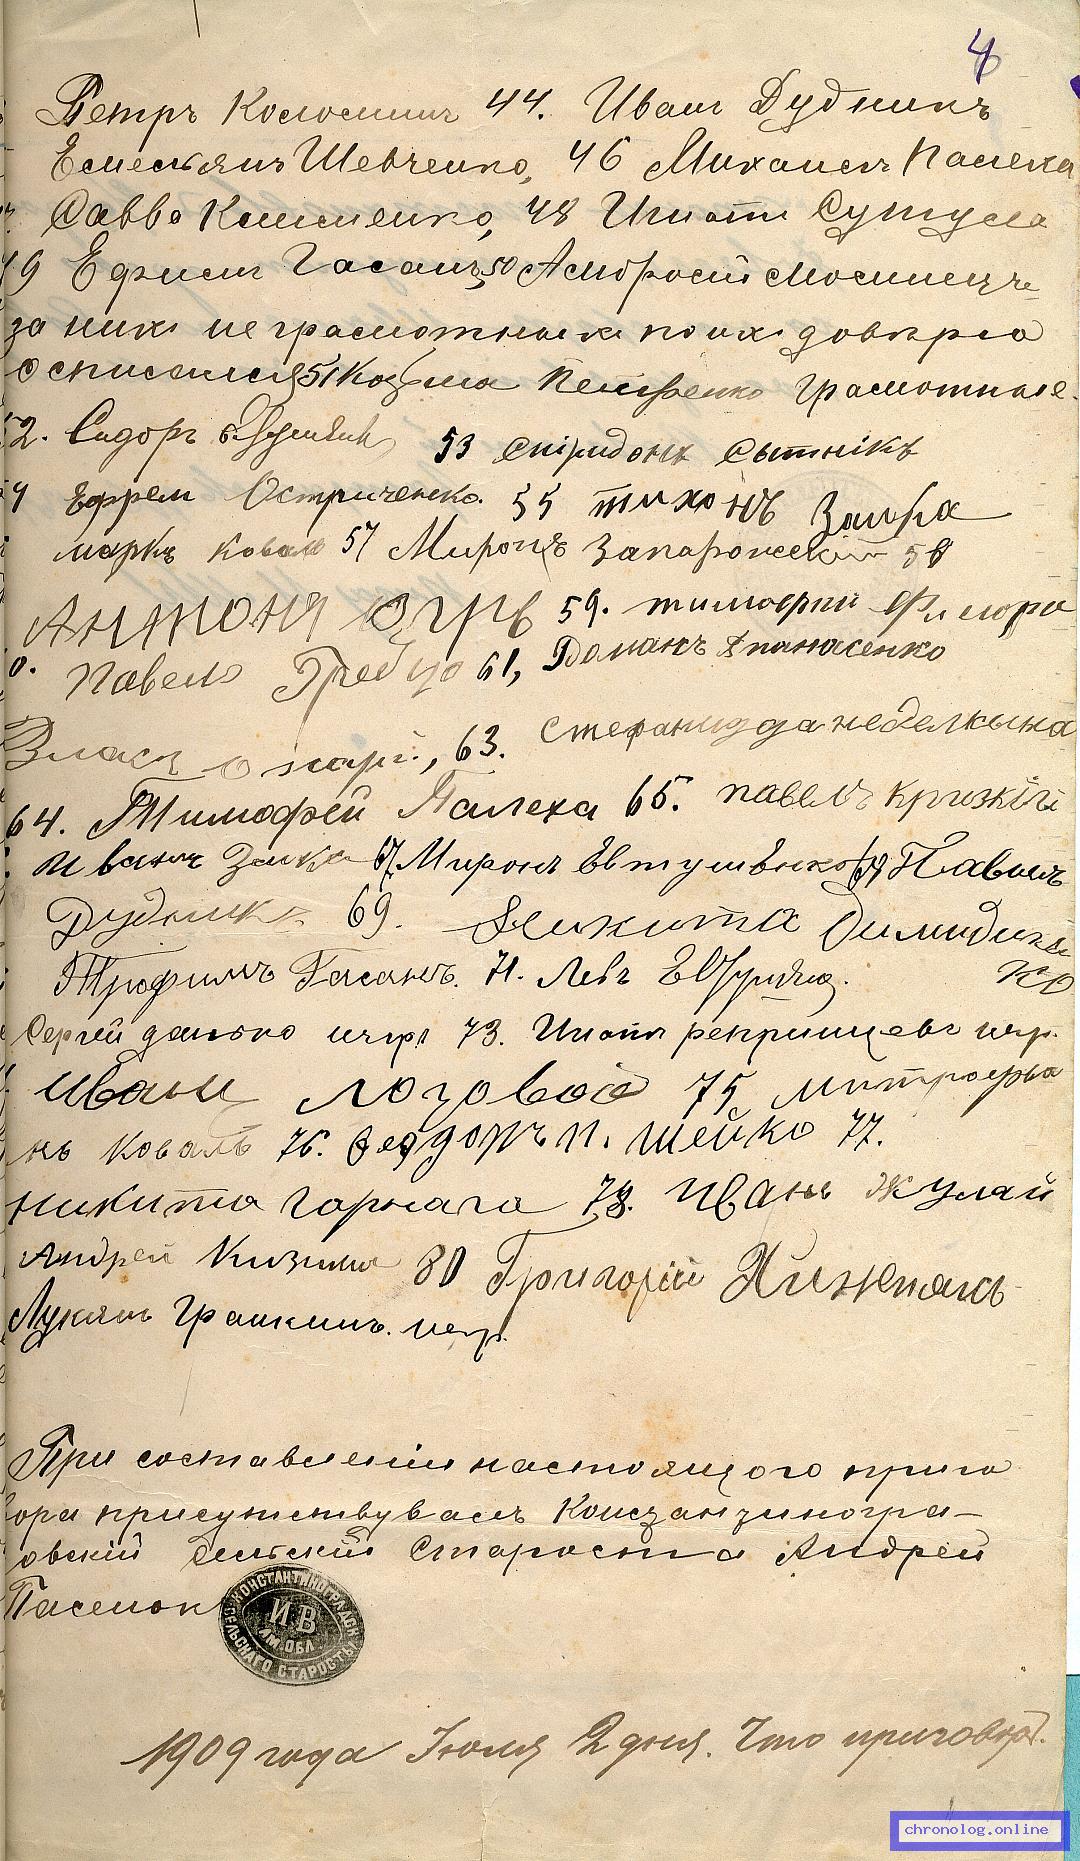 4
Петръ 44. Иванъ Дудникъ
Емельянъ Шевченко, 46 Михаилъ Палеха
Савва Клименко, 48 Игнатъ Сутула
9 Ефимъ Гасанъ, 50 Амбросій
за них неграмотных по их довѣрію
51 Козьма Петренко грамотные.
2. Сидоръ 53 Спіридонъ Сытнікъ
4 Ефрем Остриченко. 55 тихонъ Заика
маркъ коваль 57 Миронъ Запарожскій 58
Антонъ 59. тимофей
0. Павелъ Гребцо 61, Романъ Апанасенко
Власъ 63. Стефанидда неделкына
64. Тимофей Палеха 65. павелъ кризкій
иванъ Заика 67 Миронъ Евтушенко 68 Павелъ
Дудникъ 69. Никита
ко
Трофимъ Гасанъ. 71. Левъ
Сергей данько 73. Игнатъ
Иванъ лозовой 75 митрофа
нъ коваль 76. Феодоръ п. шейко 77.
никита 78. иванъ Жулай
Андрей 80 Григорій Хижнякъ
Лукянъ Грашкинъ. негр.
При составленіи настоящого приго
вора присутствувалъ Констанзиногра-
овскій Сельскій Староста Андрей
Пасенок
КОНСТАНТИНОГРАДСК
И В
АМ. ОБЛ
СЕЛЬСКАГО СТАРОСТЫ
1909 года Іюля 2 дня. Что
chronolog.online